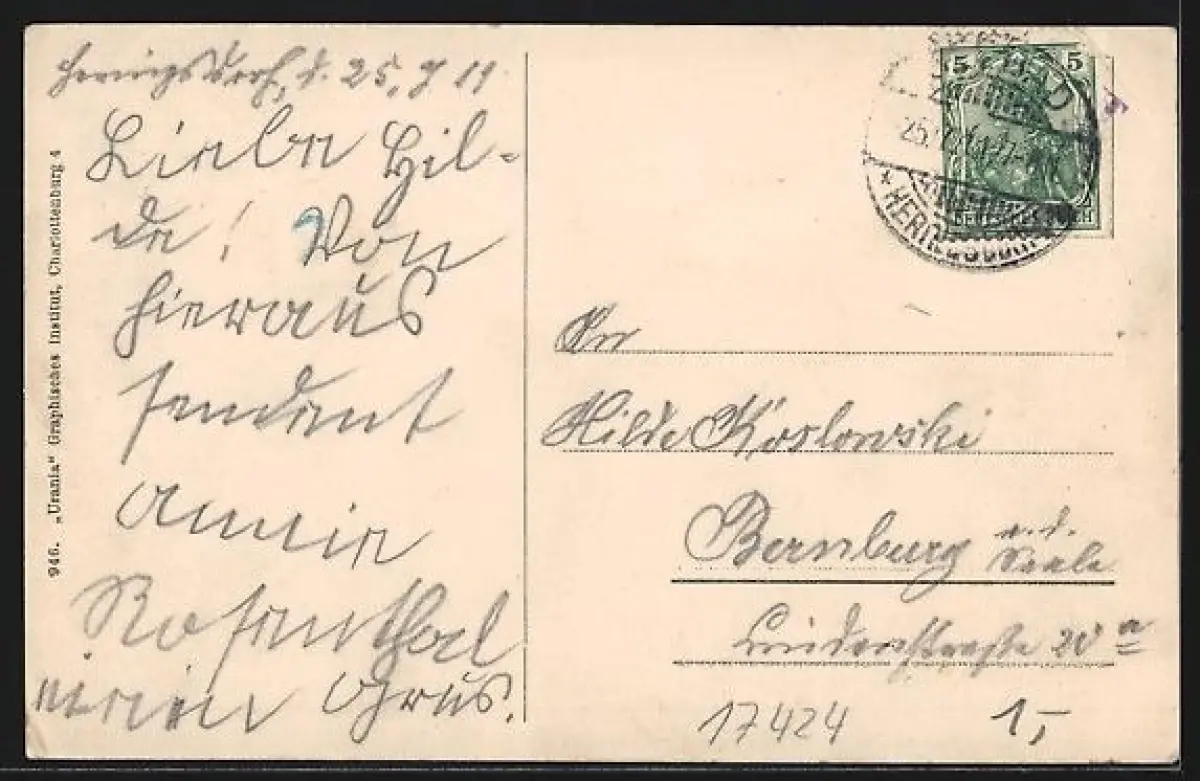 Heringsdorf, d. 25. 7 11.
Liebe Hil-
de! Von
hieraus
sendet
Annie
Rosenthal
einen Grus.
946. „Urania“ Graphisches Institut, Charlottenburg 4
5 5
DEUTSCHES REICH
* HERINGSDORF
An
Hilde Koslowski
Bernburg a. d.
Saale
Lindenstraße 20 a
17424
1,-